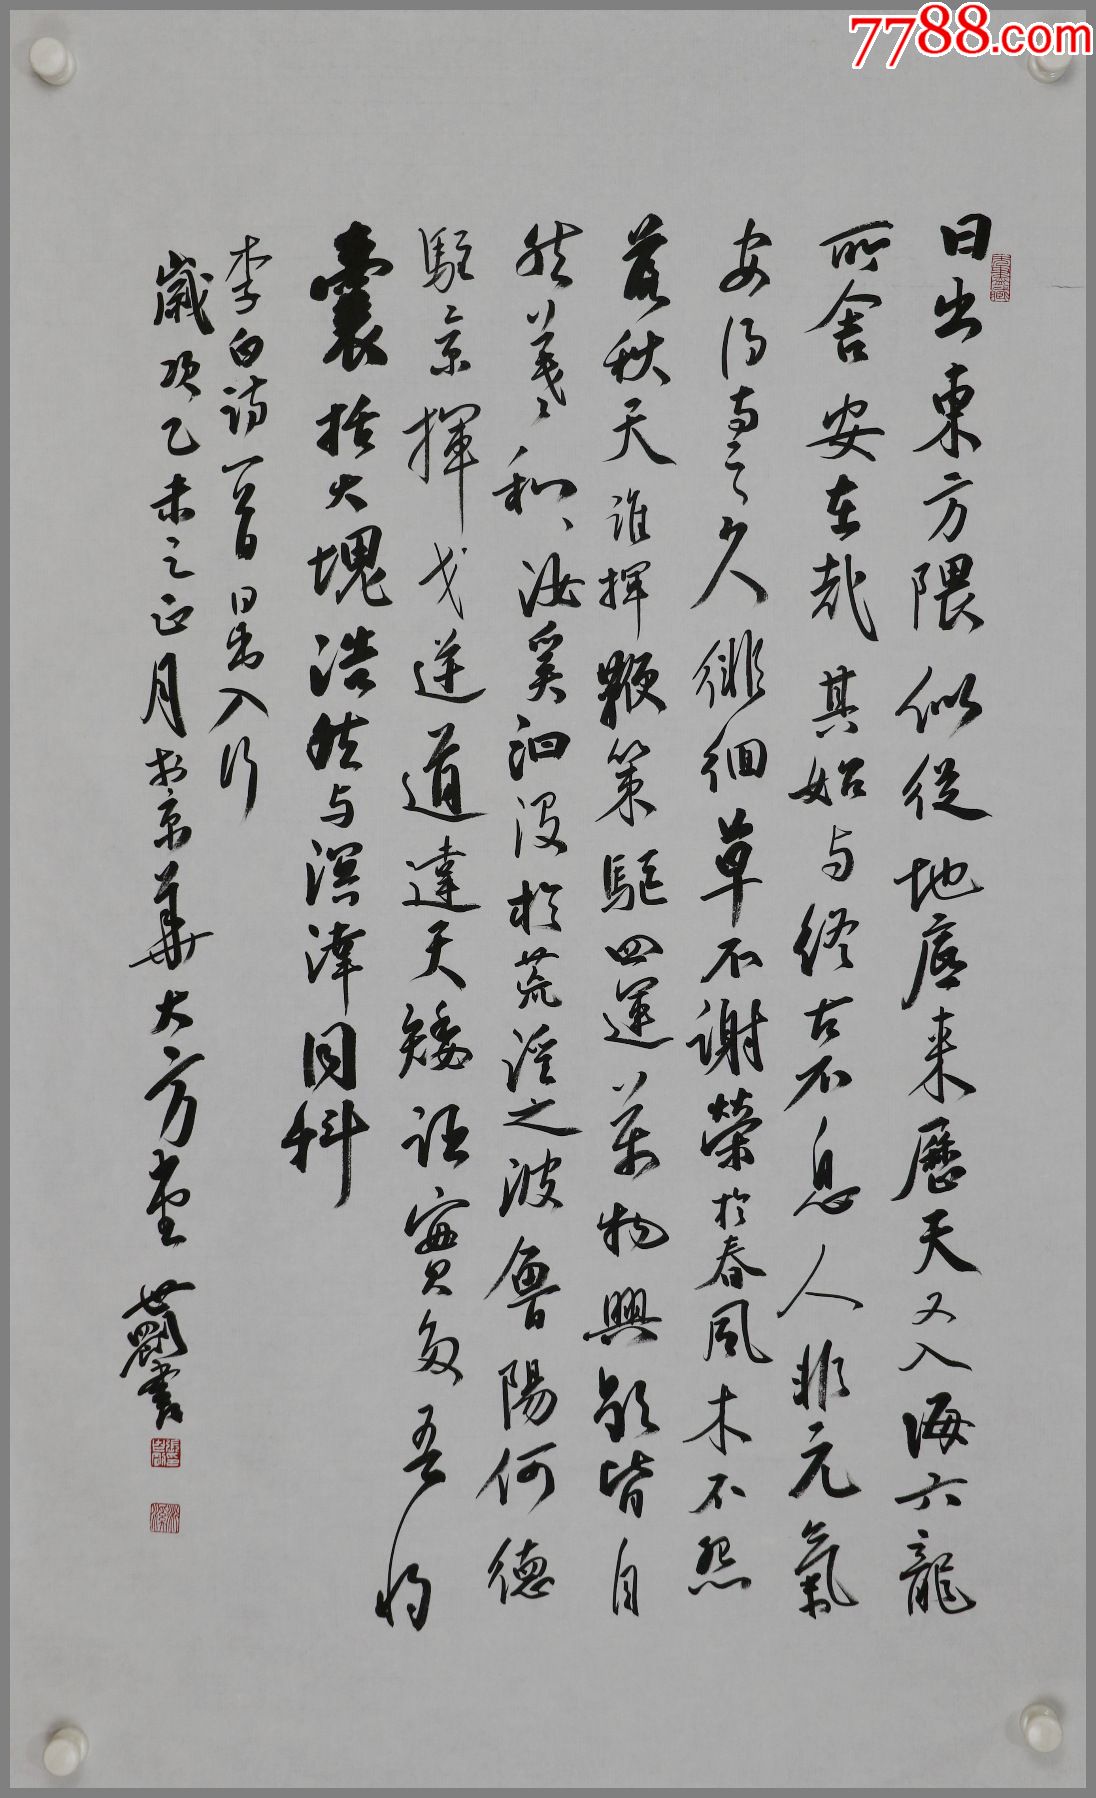 7788.com
日出東方隈似從地底來歷天又入海六龍
所舍安在哉其始与終古不息人非元氣
安得与之久徘徊草不謝榮於春風木不怨
落秋天誰揮鞭策驅四運萬物興歇皆自
然羲々和、汝奚汩没於荒淫之波魯陽何德
駐景揮戈逆道違天矯誣實多吾将
囊括大塊浩然与溟涬同科
李白詩一首日出入行
歲次乙未之正月於京華大方堂